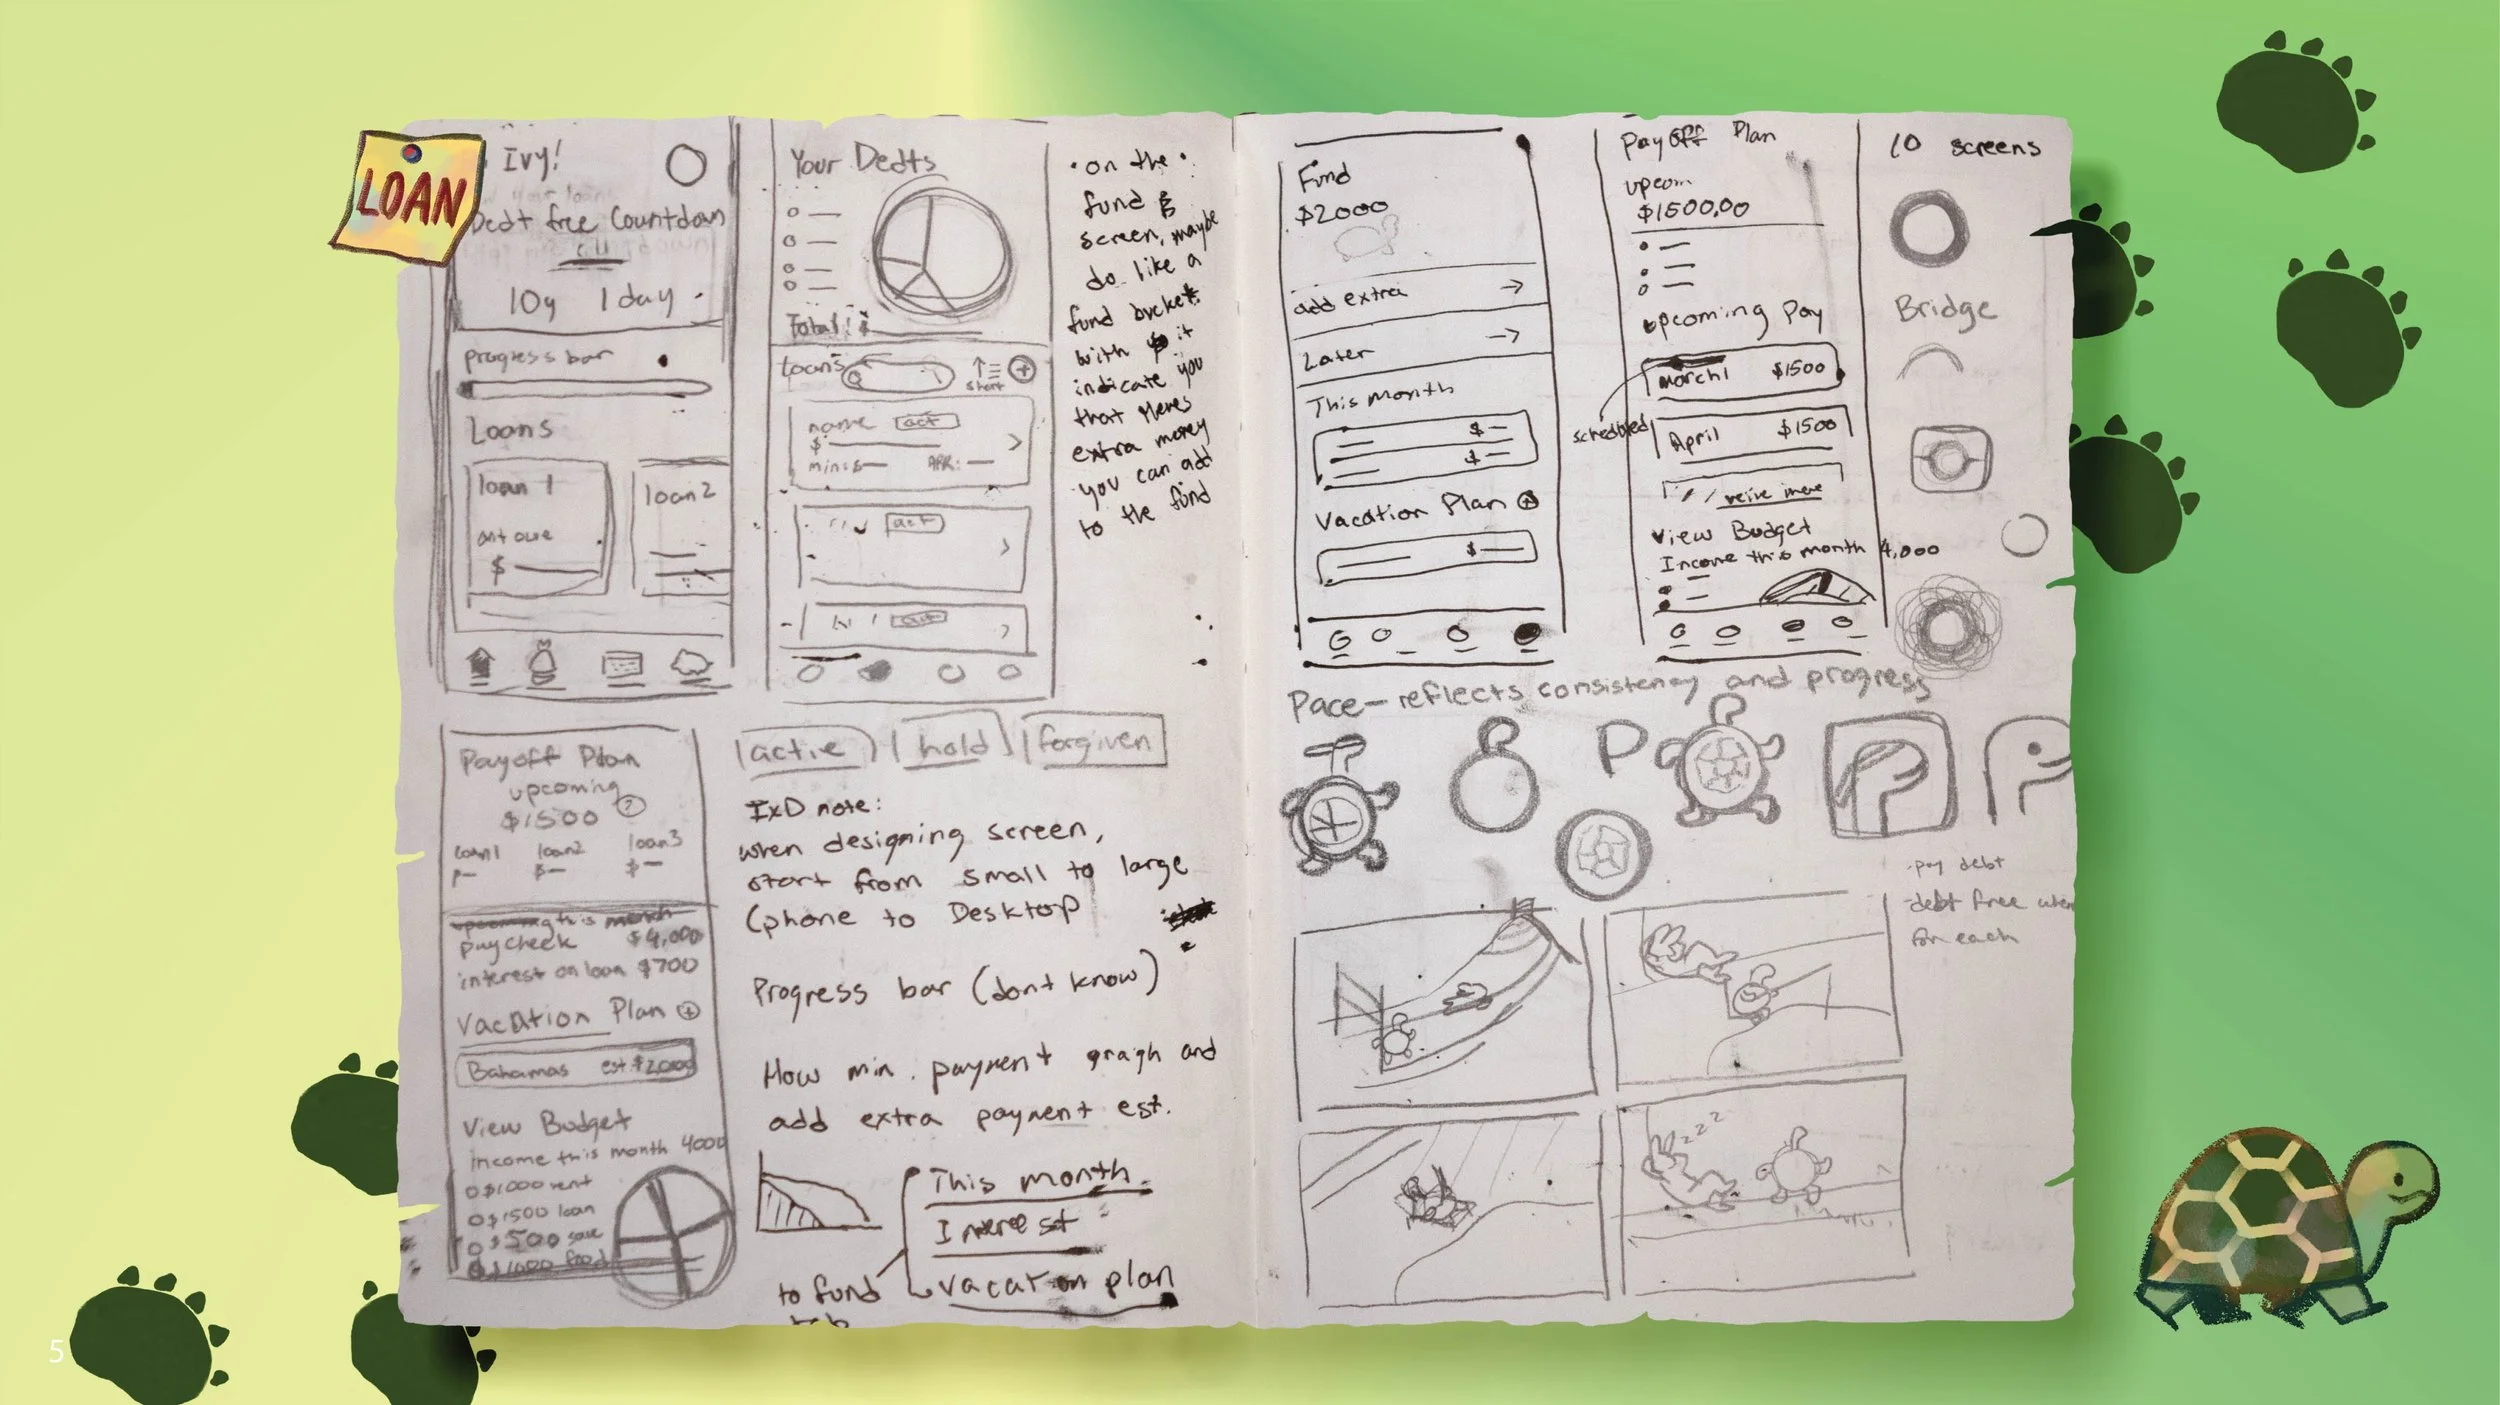 LOAN
Ivy!
Dedt free Countdown
10y 1 day
progress bar
Loans
loan 1
amt owe
$
loan 2
Your Dedts
Total: $
loans
start
name act
$
min: $ APR:
act
on the
fund $
screen, maybe
do like a
fund bucket
with $ it
indicate you
that theres
extra money
you can add
to the fund
Payoff Plan
upcoming
$1500 ?
loan1 loan2 loan3
$—
$—
this month
paycheck $4,000
interest on loan $700
Vacation Plan +
Bahamas est. $2000
View Budget
income this month 4000
$1000 rent
$1500 loan
$500 save
$1000 food
active
hold
forgiven
IxD note:
when designing screen,
start from small to large
(phone to Desktop
Progress bar (dont know)
How min. payment graigh and
add extra payment est.
This month
Interest
vacation plan
to fund
tab
Fund
$2000
add extra →
Later →
This month
$—
$—
Vacation Plan +
$—
Payoff Plan
upcom
$1500.00
upcoming Pay
March 1 $1500
scheduled
April $1500
View Budget
Income this month 4,000
10 screens
Bridge
Pace— reflects consistency and progress
P
-pay debt
-debt free when
for each
zzz
5